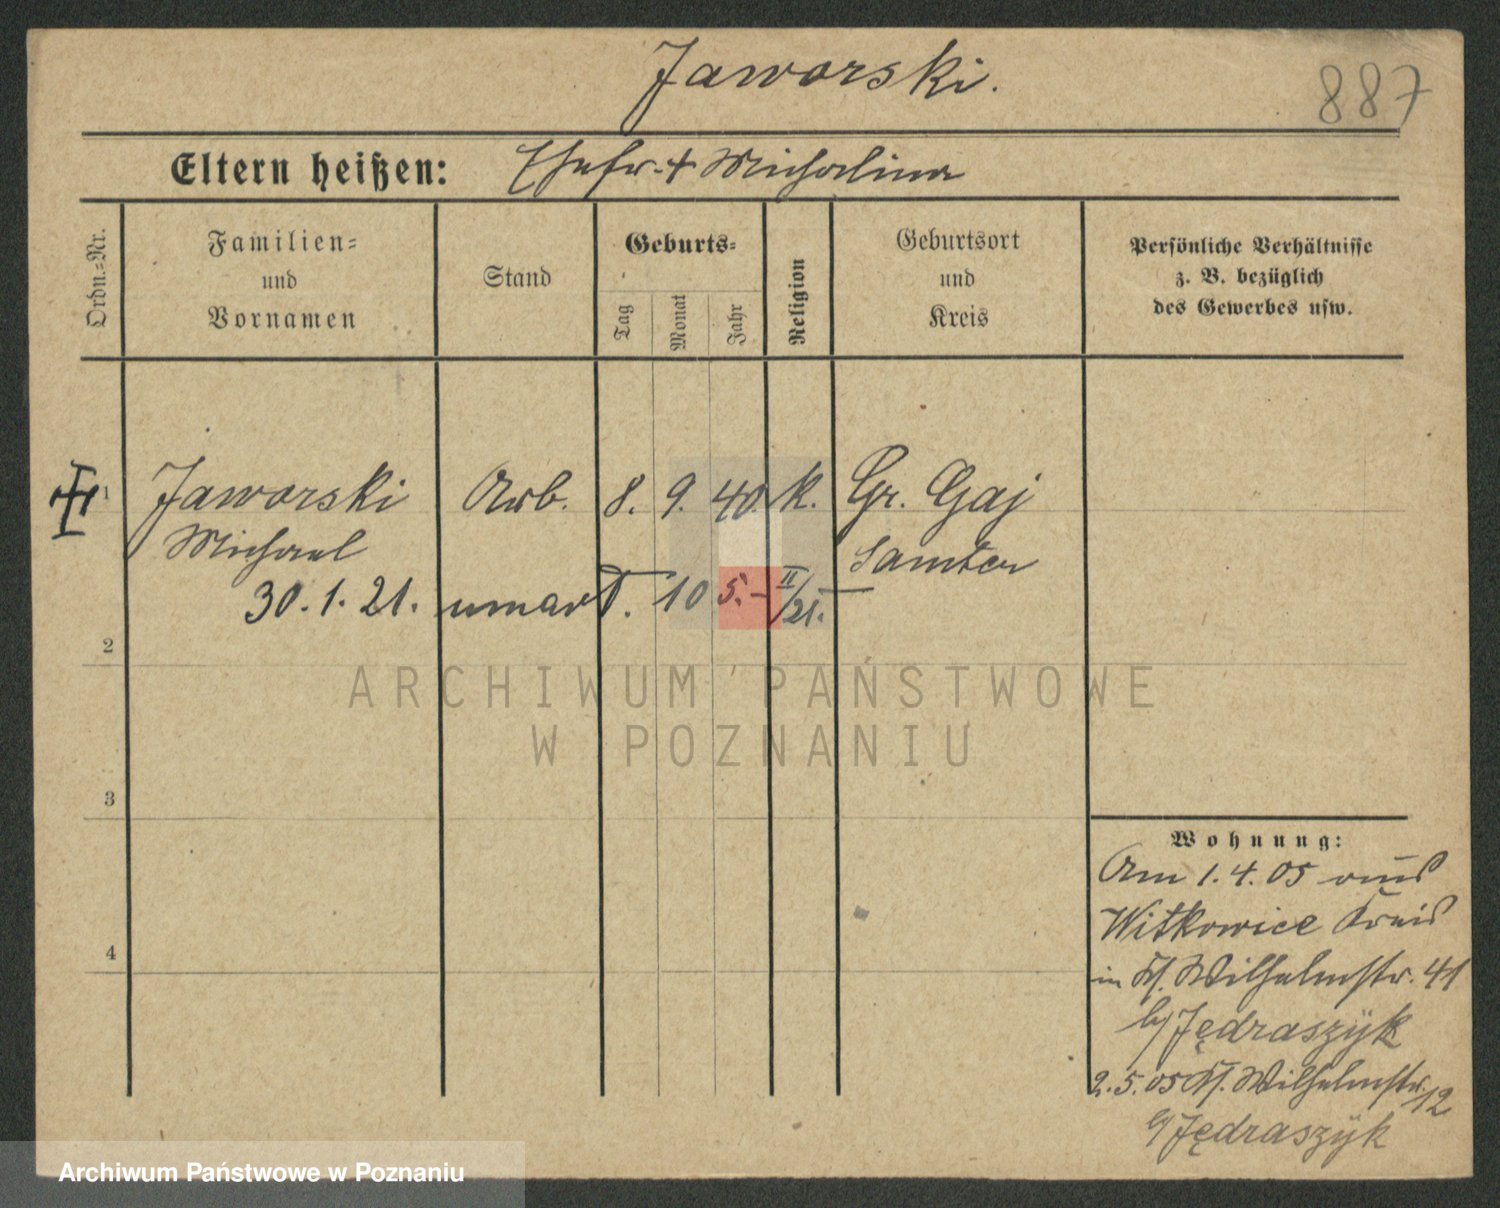 Jaworski.
887
Eltern heißen: Ehefr. + Michalina
Ordn.=Nr.
Familien=
und
Vornamen
Stand
Geburts=
Tag
Monat
Jahr
Religion
Geburtsort
und
Kreis
Persönliche Verhältnisse
z. B. bezüglich
des Gewerbes usw.
1 Jaworski Arb. 8. 9. 40. k. Gr. Gaj
Michael Samter
30.1.21. umarł. 10 5.- II/21.
2
ARCHIWUM PAŃSTWOWE
W POZNANIU
3
4
Wohnung:
Am 1.4.05 aus
Witkowice Kreis
in Wilhelmstr. 41
b/ Jędraszÿk
2.5.05 Wilhelmstr. 12
b/ Jędraszÿk
Archiwum Państwowe w Poznaniu